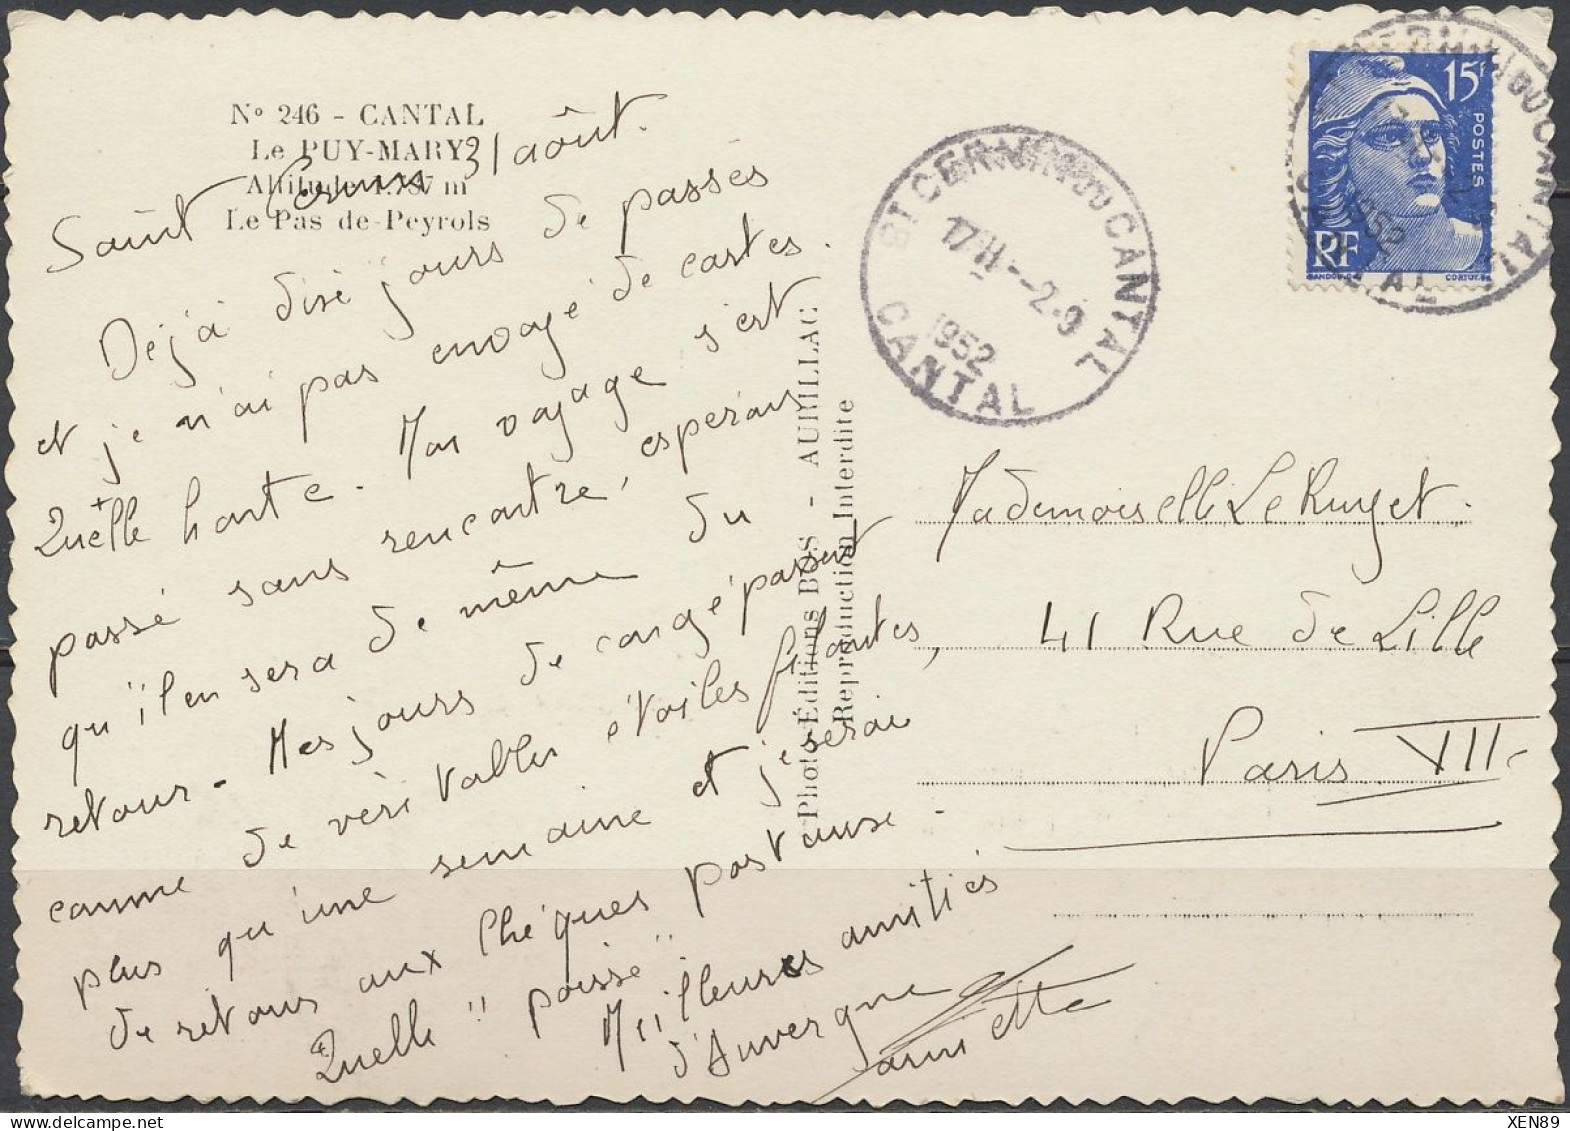 N° 246 - CANTAL
Le PUY-MARY
Altitude 1.787 m
Le Pas de Peyrols
Saint Cernin 31 août.
Déjà dixé jours de passés
et je n'ai pas envoyé de cartes.
Quelle honte. Mon voyage s'est
passé sans rencontre, esperons
qu'il en sera de même du
retour. Mes jours de congé passent
comme de véritables étoiles filantes,
plus qu'une semaine et je serai
de retour aux Chèques postaux.
Quelle "poisse"
Meilleures amitiés
d'Auvergne
Photo-Éditions BOS - AURILLAC
Reproduction Interdite
ST CERNIN DU CANTAL
17H - 2-9
1952
CANTAL
15F
POSTES
RF
GANDON
CORTOT
1952
Mademoiselle Le Ruyet.
41 Rue de Lille
Paris VII
XEN89